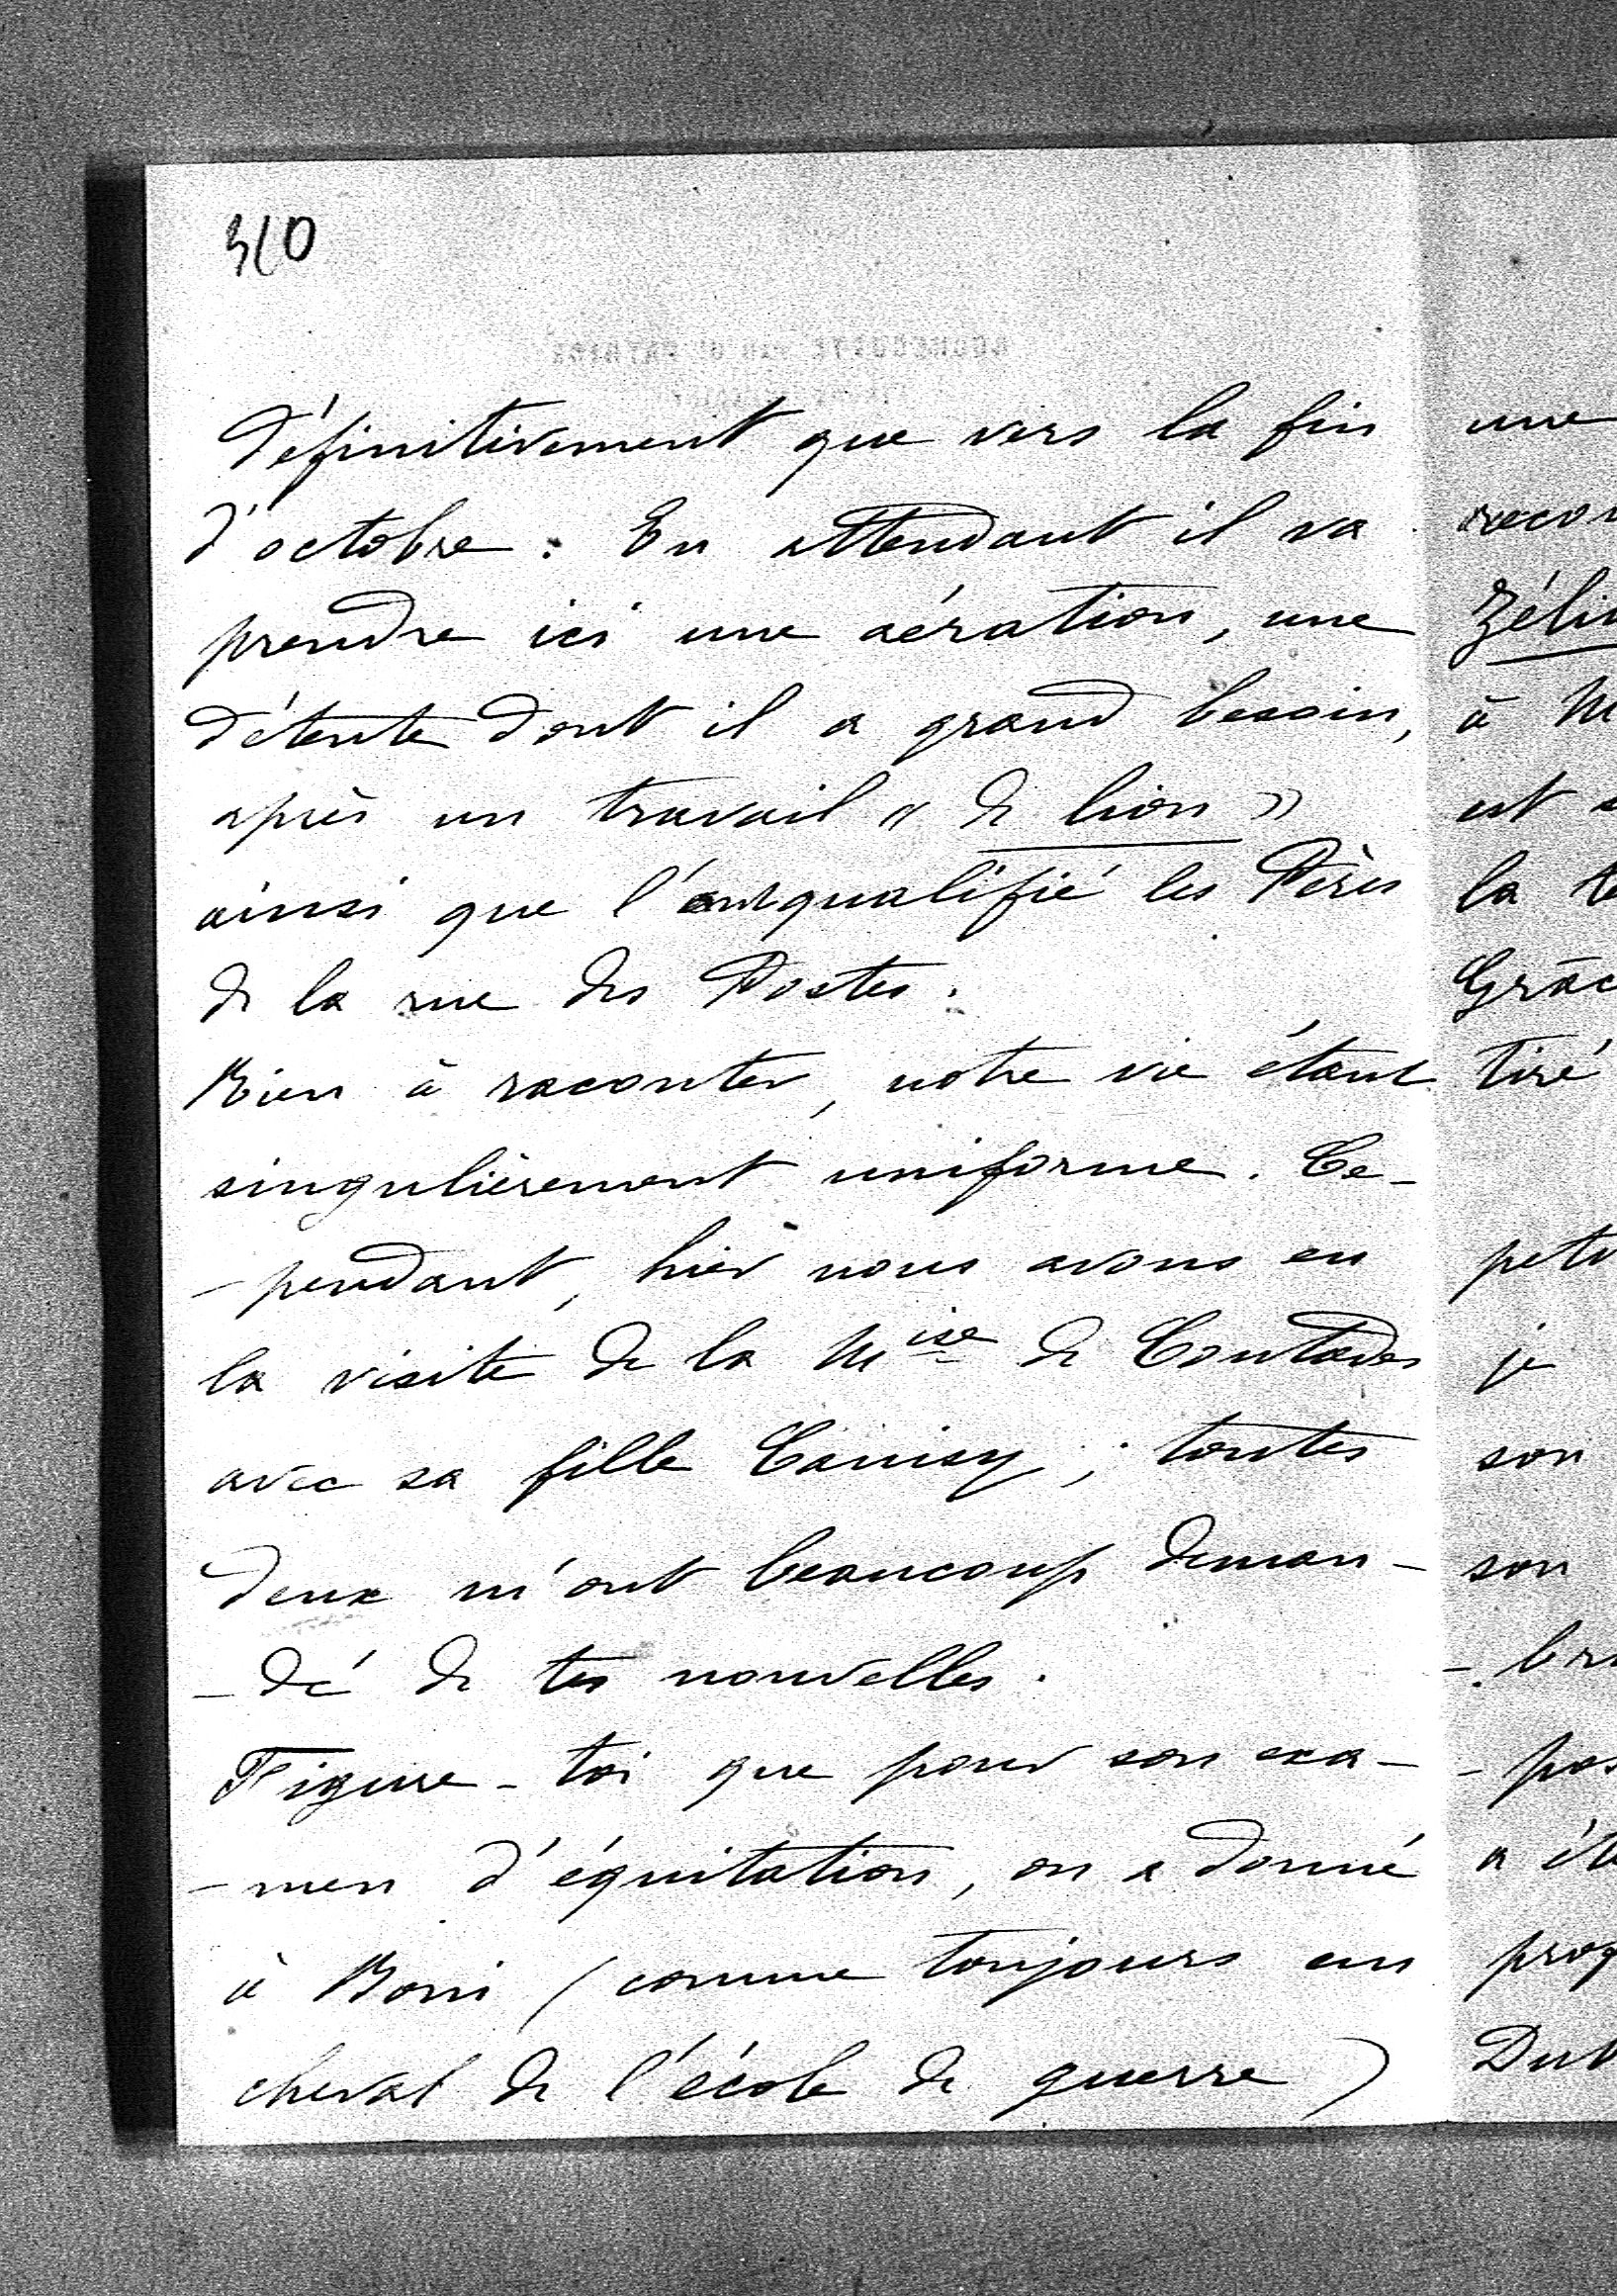 310
définitivement que vers la fin
d'octobre. En attendant il va
prendre ici une aération, une
détente dont il a grand besoin,
après un travail « de lion »
ainsi que l'ont qualifié les Pères
de la rue des Postes.
Rien à raconter, notre vie étant
singulièrement uniforme. Ce-
-pendant, hier nous avons eu
la visite de la Mise de Contades
avec sa fille Canisy ; toutes
deux m'ont beaucoup deman-
-dé de tes nouvelles.
Figure-toi que pour son exa-
-men d'équitation, on a donné
à Boni (comme toujours un
cheval de l'école de guerre)
une
à
la
tiré
je
son
son